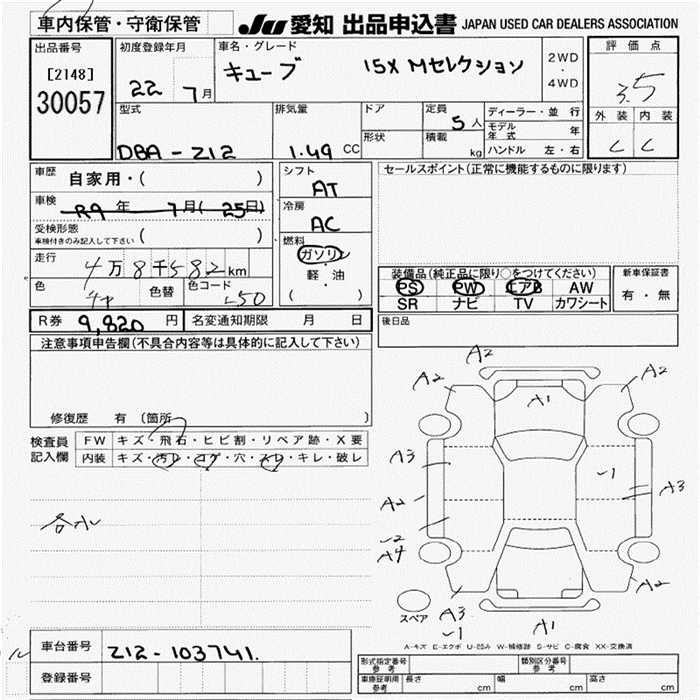 車内保管・守衛保管
JU 愛知 出品申込書 JAPAN USED CAR DEALERS ASSOCIATION
出品番号
[2148]
30057
初度登録年月
22 7月
車名・グレード
キューブ 15X Mセレクション
2WD
・
4WD
評価点
3.5
外装 内装
C C
型式
DBA-Z12
排気量
1.49 CC
ドア
形状
定員
5人
積載
kg
ディーラー・並行
モデル年式 年
ハンドル 左・右
車歴 自家用・( )
車検 R9年 7月(25日)
受検形態
車検付きのみ記入して下さい ( )
走行 4万8千582km
色 色替 色コード
L50
シフト
AT
冷房
AC
燃料
ガソリン
・
軽・油
( )
セールスポイント(正常に機能するものに限ります)
装備品(純正品に限り○をつけてください)
PS PW エアB AW
SR ナビ TV カワシート
新車保証書
有・無
後日品
R券 9,820円 名変通知期限 月 日
注意事項申告欄(不具合内容等は具体的に記入して下さい)
修復歴 有(箇所 )
検査員
記入欄
FW キズ・飛石・ヒビ割・リペア跡・X要
内装 キズ・汚レ・コゲ・穴・スレ・キレ・破レ
各小
A2
A2
A2
A1
A3
-1
A3
A2
-2
A4
A2
スペア
A3
-1
A1
A-キズ E-エクボ U-凹み W-補修跡 S-サビ C-腐食 XX-交換済
車台番号 Z12-103741.
登録番号
型式指定番号
参考
類別区分番号
参考
車庫証明用
参考
長さ cm 幅 cm 高さ cm